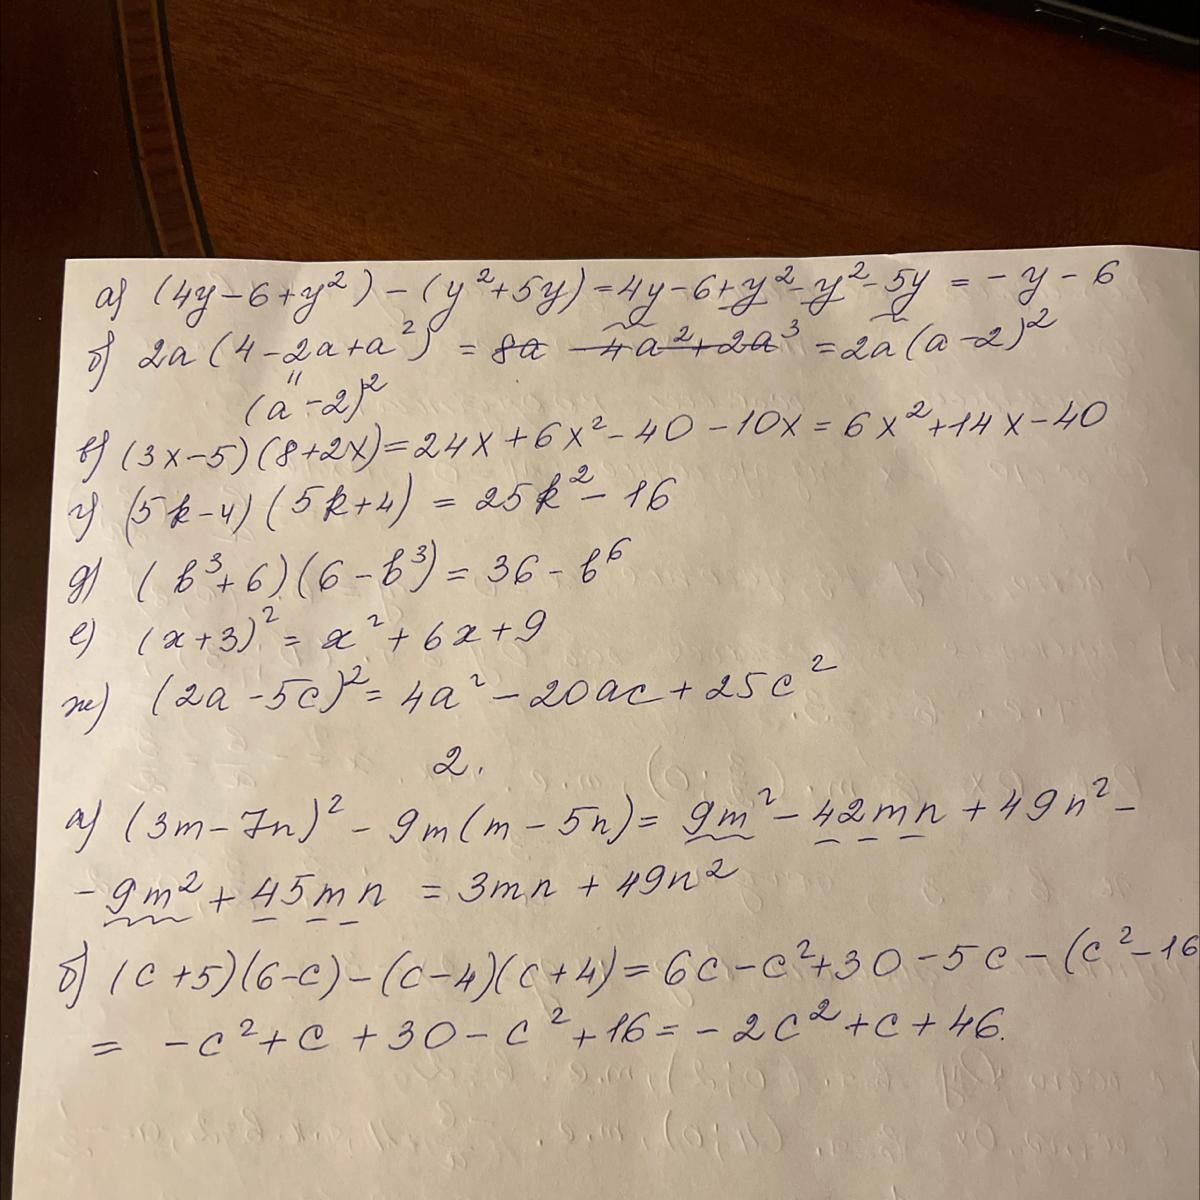 а) (4y-6+y²)-(y²+5y)=4y-6+y²-y²-5y=-y-6
б) 2a(4-2a+a²)=8a-4a²+2a³=2a(a-2)²
"
(a-2)²
в) (3x-5)(8+2x)=24x+6x²-40-10x=6x²+14x-40
г) (5k-4)(5k+4)=25k²-16
д) (b³+6)(6-b³)=36-b⁶
е) (x+3)²=x²+6x+9
ж) (2a-5c)²=4a²-20ac+25c²
2.
а) (3m-7n)²-9m(m-5n)=9m²-42mn+49n²-
-9m²+45mn=3mn+49n²
б) (c+5)(6-c)-(c-4)(c+4)=6c-c²+30-5c-(c²-16
=-c²+c+30-c²+16=-2c²+c+46.